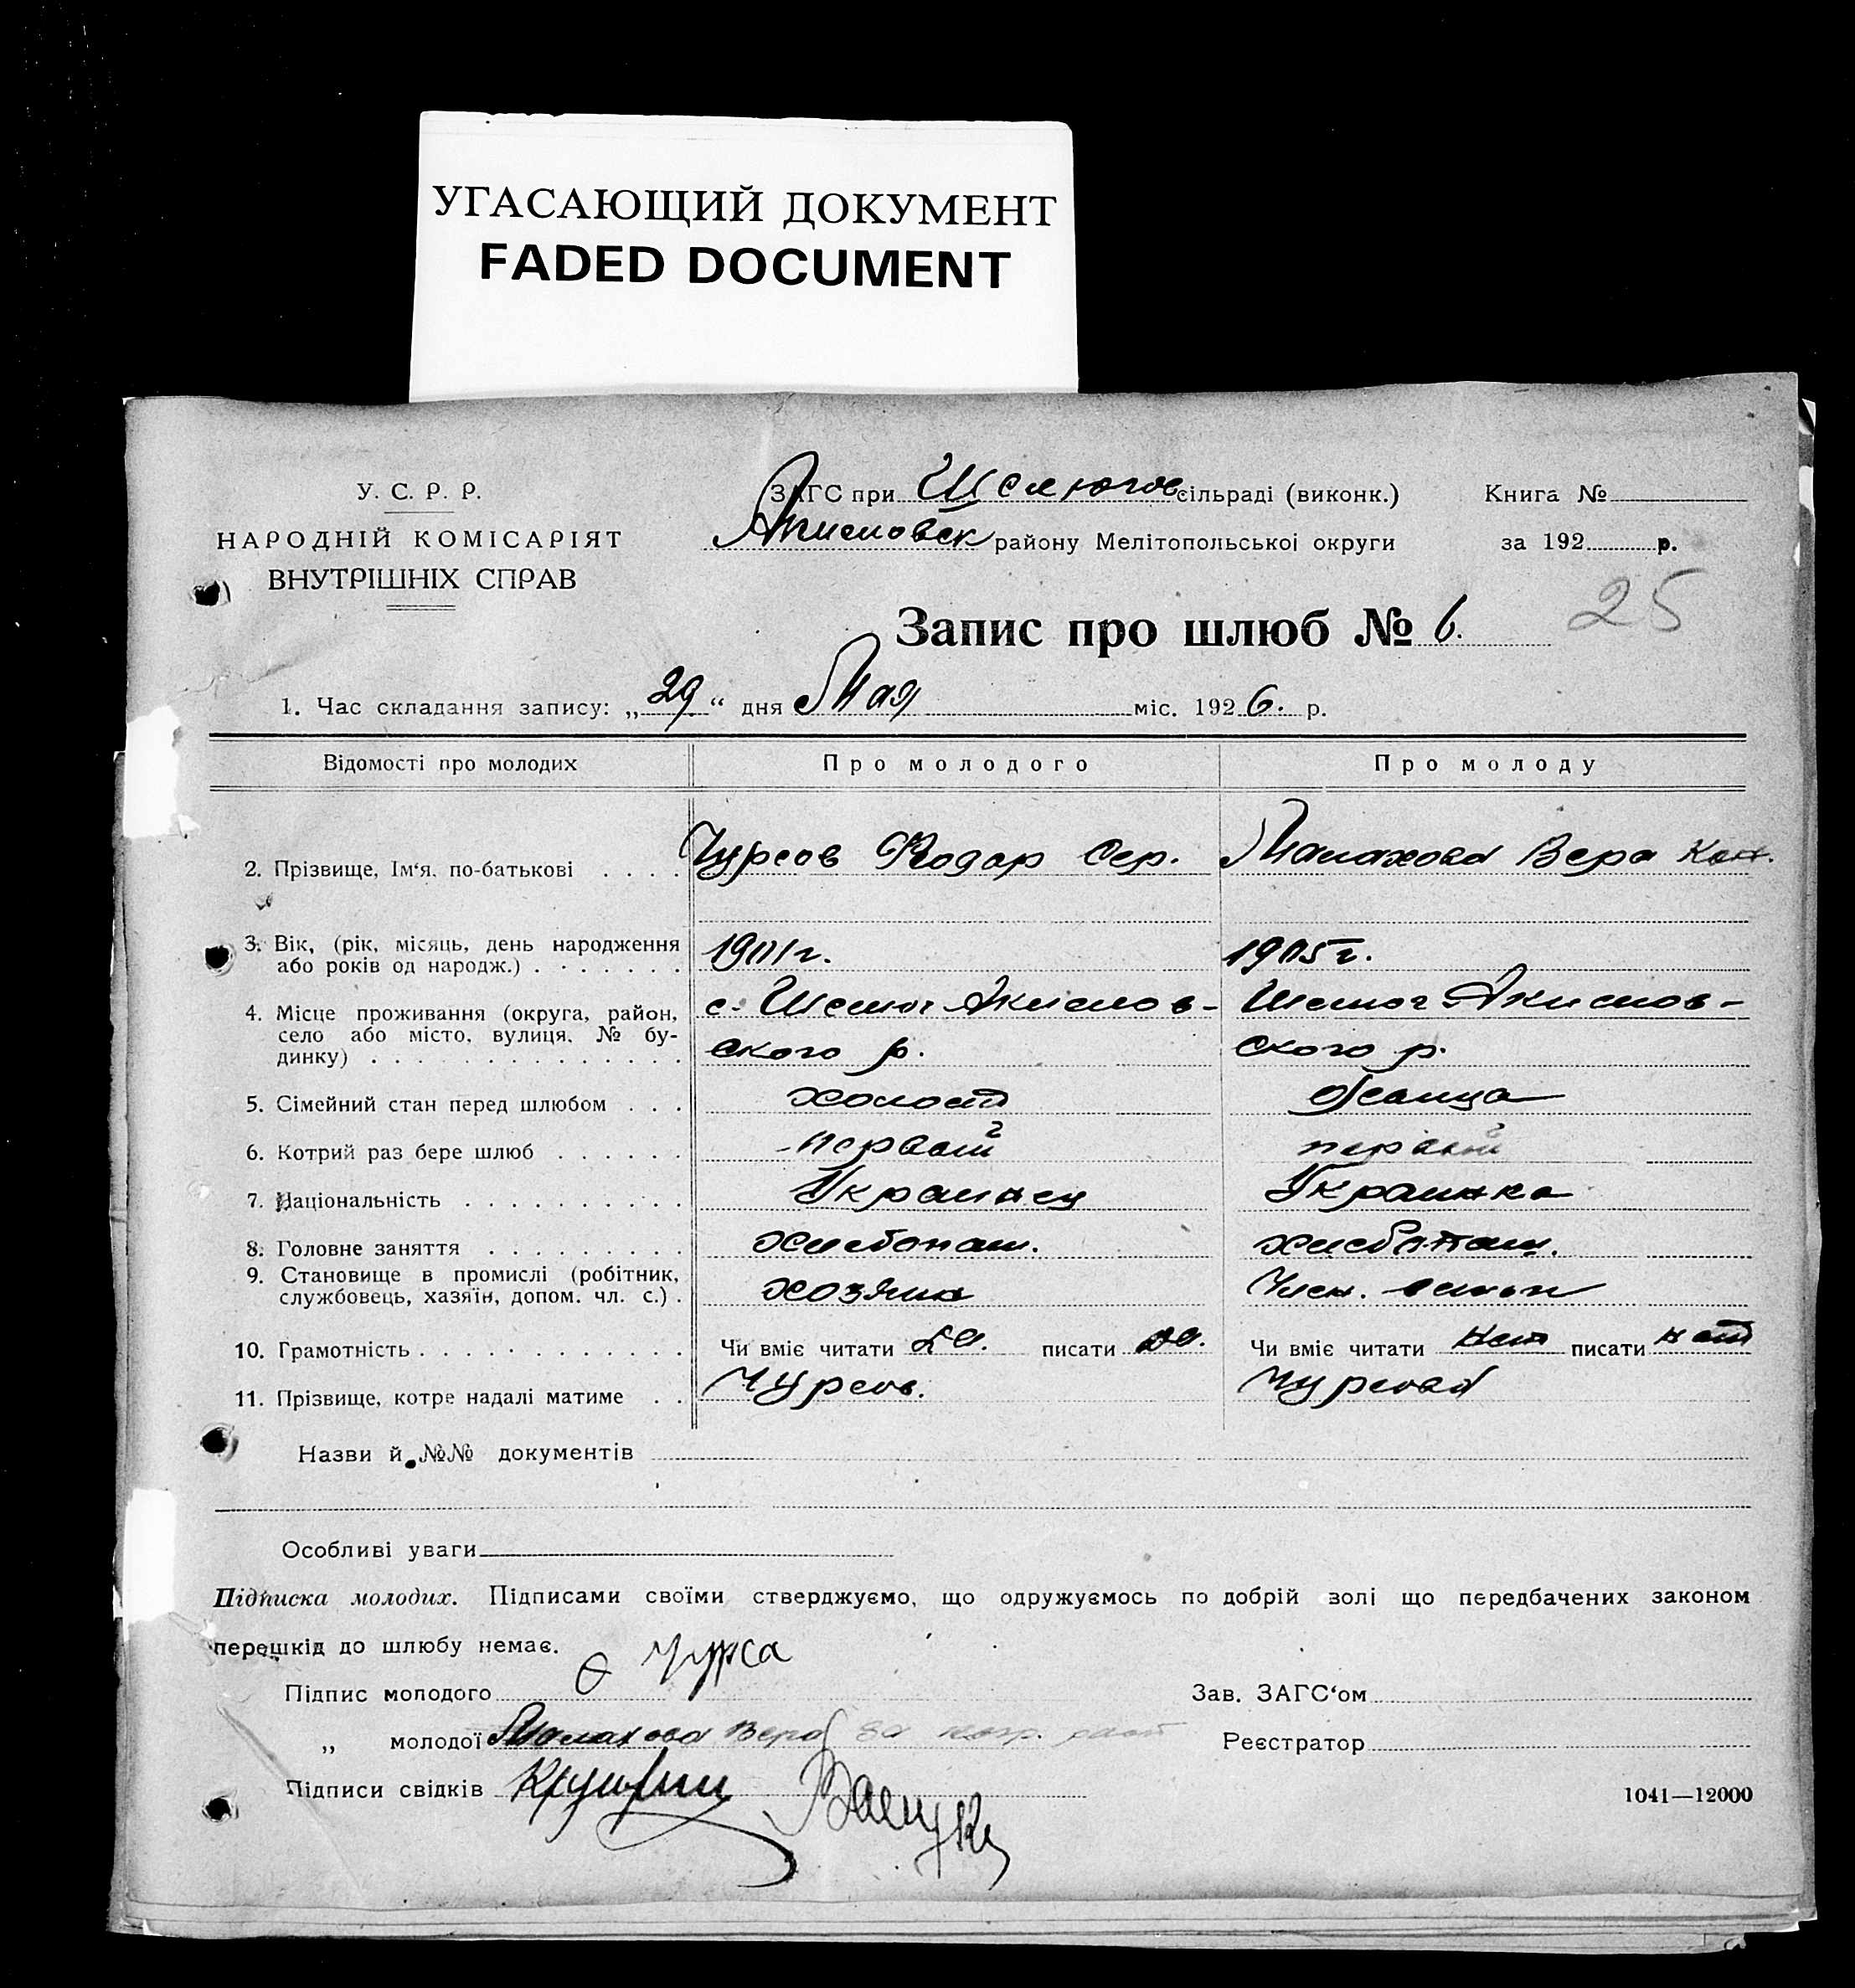 УГАСАЮЩИЙ ДОКУМЕНТ
FADED DOCUMENT
У. С. Р. Р.
НАРОДНІЙ КОМІСАРІЯТ
ВНУТРІШНІХ СПРАВ
ЗАГС при Шелюгов сільраді (виконк.)
Акимовск району Мелітопольської округи
Книга №
за 192 р.
25
Запис про шлюб № 6.
1. Час складання запису: „29“ дня Мая міс. 1926. р.
Відомості про молодих Про молодого Про молоду
2. Прізвище, Ім‘я, по-батькові . . . . Чурсов Федор Сер. Малахова Вера Кон.
3. Вік, (рік, місяць, день народження 1901 г. 1905 г.
або років од народж.) . . . . . . .
4. Місце проживання (округа, район, с. Шелюг Акимов- Шелюг Акимов-
село або місто, вулиця, № бу- ского р. ского р.
динку) . . . . . . . . . . . . . .
5. Сімейний стан перед шлюбом . . . холост девица
6. Котрий раз бере шлюб . . . . . . первый первый
7. Національність . . . . . . . . . . Украинец Украинка
8. Головне заняття . . . . . . . . . хлебопаш. хлебопаш.
9. Становище в промислі (робітник, хозяин Член. семьи
службовець, хазяїн, допом. чл. с.) .
10. Грамотність . . . . . . . . . . . . Чи вміє читати да. писати да. Чи вміє читати нет писати нет
11. Прізвище, котре надалі матиме . . Чурсов. Чурсова
Назви й №№ документів
Особливі уваги
Підписка молодих. Підписами своїми стверджуємо, що одружуємось по добрій волі що передбачених законом
перешкід до шлюбу немає.
Підпис молодого Ѳ Чурса Зав. ЗАГС‘ом
„ молодої Малахова Вера за негр. Реєстратор
Підписи свідків
1041—12000